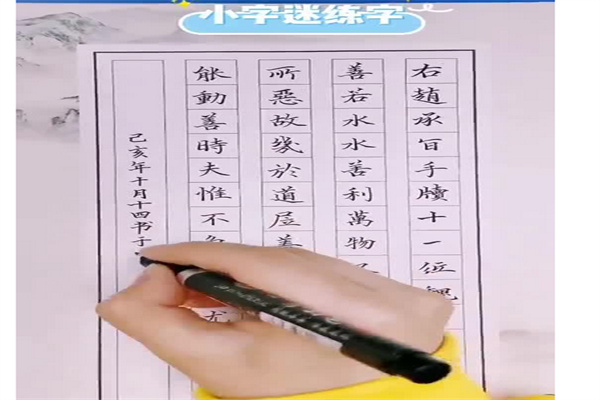 小字迷练字
右趙承旨手牘十一
善若水水善利萬物
所惡故幾於道居善
能動善時夫惟不尤
己亥年十月十四书于